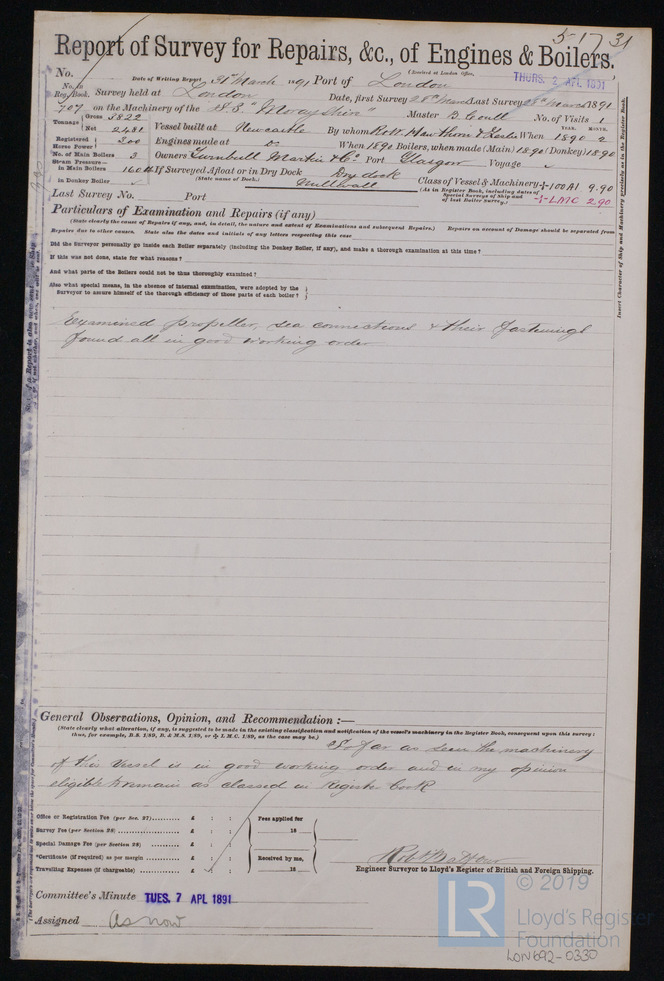 5173
Report of Survey for Repairs, &c., of Engines & Boilers.
(Received at London Office, THURS. 2 APL 1891
No. Date of Writing Report 31st March 1891 Port of London
No. in Reg. Book. Survey held at London Date, first Survey 28th March Last Survey 28th March 1891
707 on the Machinery of the S.S. "Morayshire" Master B. Coull No. of Visits 1
Tonnage Gross 3822
Net 2481 Vessel built at Newcastle By whom R & W. Hawthorn Leslie When 1890 2
YEAR. MONTH.
Registered Horse Power 300 Engines made at do When 1890 Boilers, when made (Main) 1890 (Donkey) 1890
No. of Main Boilers 3 Owners Turnbull Martin & Co Port Glasgow Voyage
Steam Pressure—in Main Boilers 160 lb If Surveyed Afloat or in Dry Dock Dry dock
in Donkey Boiler (State name of Dock.) Millwall
Class of Vessel & Machinery 100A1 9.90
(As in Register Book, including dates of Special Surveys of Ship and of last Boiler Survey.) LMC 2.90
Last Survey No. Port
Particulars of Examination and Repairs (if any)
(State clearly the cause of Repairs if any, and, in detail, the nature and extent of Examinations and subsequent Repairs.) Repairs on account of Damage should be separated from
Repairs due to other causes. State also the dates and initials of any letters respecting this case
Did the Surveyor personally go inside each Boiler separately (including the Donkey Boiler, if any), and make a thorough examination at this time?
If this was not done, state for what reasons?
And what parts of the Boilers could not be thus thoroughly examined?
Also what special means, in the absence of internal examination, were adopted by the
Surveyor to assure himself of the thorough efficiency of those parts of each boiler?
Examined propeller, sea connections & their fastenings
found all in good working order
Insert Character of Ship and Machinery precisely as in the Register Book.
General Observations, Opinion, and Recommendation :—
(State clearly what alteration, if any, is suggested to be made in the existing classification and notification of the vessel's machinery in the Register Book, consequent upon this survey;
thus, for example, B.S. 1/89, B. & M.S. 1/89, or L.M.C. 1/89, as the case may be.)
So far as seen the machinery
of this vessel is in good working order and in my opinion
eligible to remain as classed in Register Book
Office or Registration Fee (per Sec. 27) £ : :
Survey Fee (per Section 28) £ : :
Special Damage Fee (per Section 28) £ : :
*Certificate (if required) as per margin £ : :
Travelling Expenses (if chargeable) £ : :
Fees applied for
18
Received by me,
18
Engineer Surveyor to Lloyd's Register of British and Foreign Shipping.
Committee's Minute TUES. 7 APL 1891
Assigned As now
© 2019
LR
Lloyd's Register
Foundation
LON692-0330